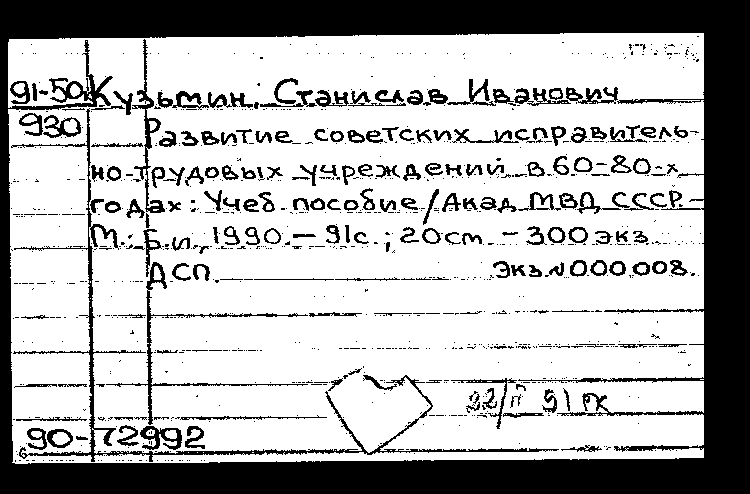 91-50 Кузьмин, Станислав Иванович
930 Развитие советских исправитель-
но-трудовых учреждений в 60-80-х
годах: Учеб. пособие/Акад. МВД СССР.-
М.: Б.и., 1990.-91с.; 20см. - 300 экз.
ДСП. Экз.N000008.
22/II 91
90-72992